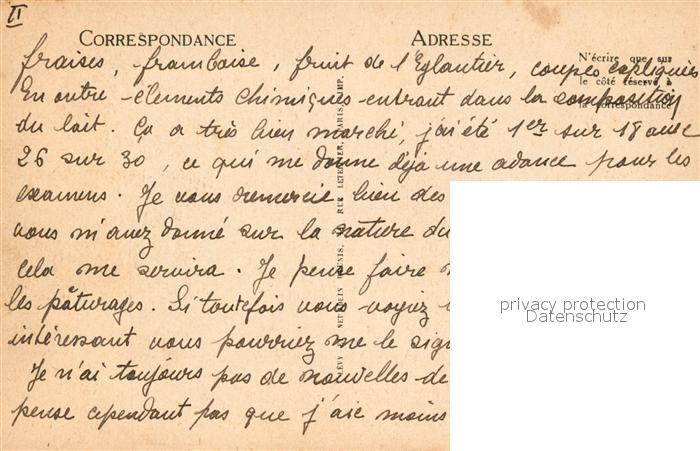 II
CORRESPONDANCE ADRESSE
N'écrire que sur
le côté réservé à
la correspondance
fraises, framboise, fruit de l'Eglantier, coupes expliquées
En outre éléments chimiques entrant dans la composition
du lait. Ça a très bien marché, j'ai été 1er sur 18 avec
26 sur 30, ce qui me donne déjà une avance pour les
examens. Je vous remercie bien des
vous m'avez donné sur la nature du
cela me servira. Je pense faire
les pâturages. Si toutefois vous voyiez
intéressant vous pourriez me le sign
Je n'ai toujours pas de nouvelles de
pense cependant pas que j'aie moins
LÉVY ET NEURDEIN RÉUNIS, RUE LETELLIER, PARIS IMP.
privacy protection
Datenschutz